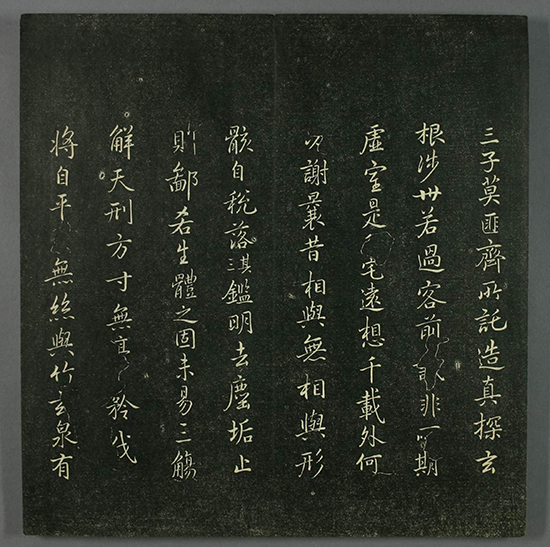 三子莫匪齊所託造真探玄
根涉世若過客前 非一期
虛室是 宅遠想千載外何
以謝曩昔相與無相與形
骸自稅落淇鑑明去塵垢止
則鄙吝生體之固未易三觴
解天刑方寸無 矜伐
將自平 無絲與竹玄泉有